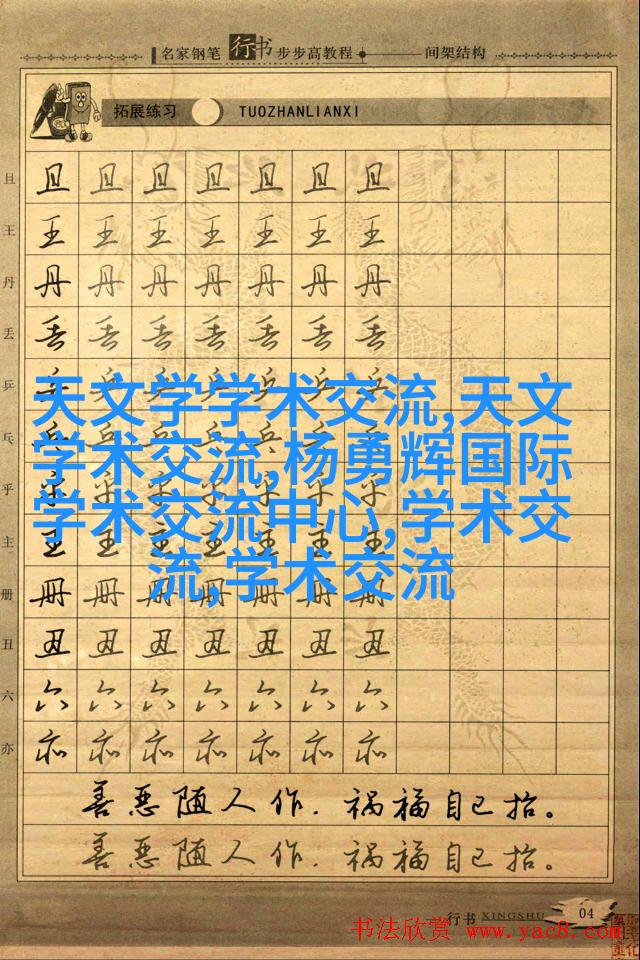 名家钢笔行书步步高教程 间架结构
拓展练习 TUOZHANLIANXI
且 且 且 且 且 且 且 且
王 王 王 王 王 王 王 王
丹 丹 丹 丹 丹 丹 丹 丹
丢 丢 丢 丢 丢 丢 丢 丢
乒 乒 乒 乒 乒 乒 乒 乒
天文学学术交流,天文
乓 乓 乓 乓 乓 乓 乓 乓
学术交流,杨勇辉国际
乎 乎 乎 乎 乎 乎 乎 乎
学术交流中心,学术交
主 主 主 主 主 主 主 主
流,学术交流
册 册 册 册 册 册 册 册
丑 丑 丑 丑 丑 丑 丑 丑
六 六 六 六 六 六 六 六
亦 亦 亦 亦 亦 亦 亦 亦
善恶随人作.祸福自己招。
善恶随人作.祸福自己招。
行书 XINGSHU 04
书法欣赏 www.yac8.com